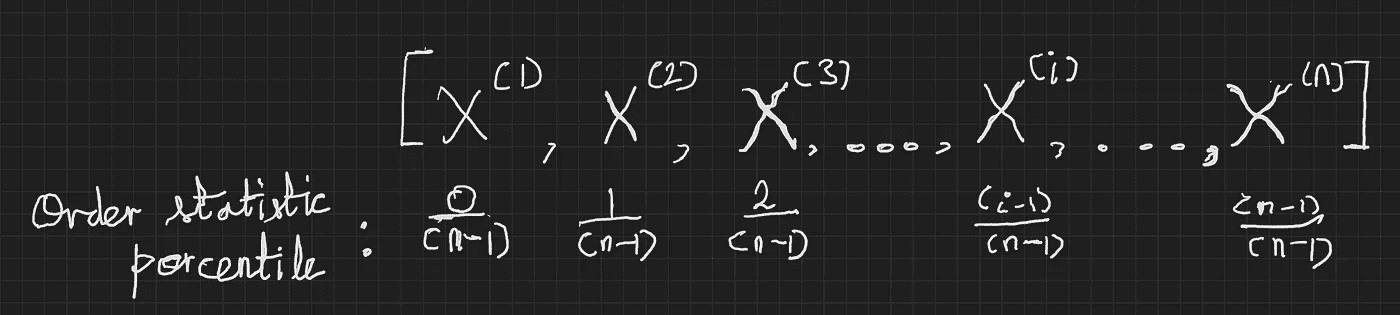 [X^(1), X^(2), X^(3), ...., X^(i), . ..., X^(n)]
Order statistic percentile : 0/(n-1) 1/(n-1) 2/(n-1) (i-1)/(n-1) (n-1)/(n-1)